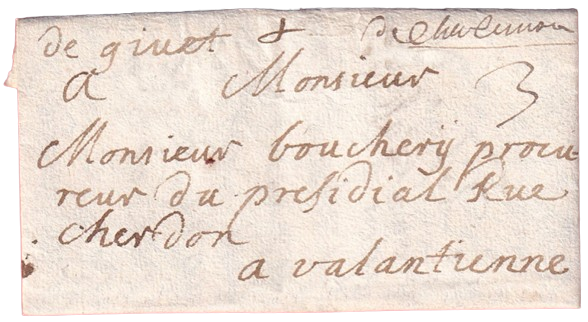 de givet + de Charlemon
A Monsieur 3
Monsieur bouchery procu-
reur du presidial Rue
cherdon
a valantienne